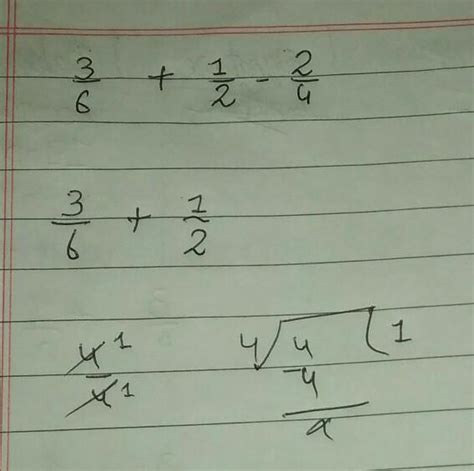 3/6 + 1/2 - 2/4
3/6 + 1/2
4 1 / 4 1
4 √ 4 ( 1
- 4
x